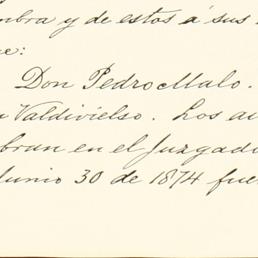 mbra y de estos á sus
e:
Don Pedro Malo.
n Valdivielso. Los au
bran en el Juzgado
Junio 30 de 1874 fue